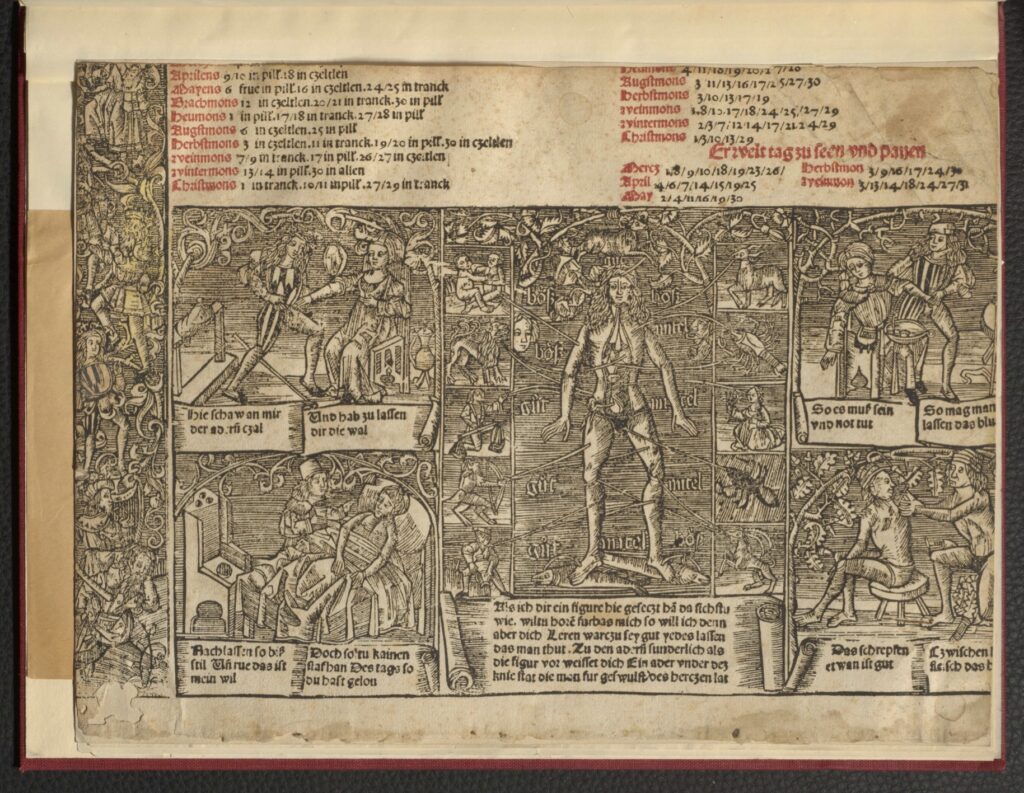 Aprilens 9/10 in pill. 18 in czeltlen
Mayens 6 frue in pill. 16 in czeltlen. 24/25 in tranck
Brachmons 12 in czeltlen. 20/21 in tranck. 30 in pill
Heumons 1 in pill. 17/18 in tranck. 27/28 in pill
Augstmons 6 in czeltlen. 25 in pill
Herbstmons 3 in czeltlen. 11 in tranck. 19/20 in pell. 30 in czeltlen
weinmons 7/9 in tranck. 17 in pill. 26/27 in czeltlen
wintermons 13/14 in pill. 30 in allen
Christmons 1 in tranck. 10/11 in pill. 27/29 in tranck
Heumons 4/11/18/19/20/27/28
Augstmons 3/11/13/16/17/25/27/30
Herbstmons 3/10/13/17/19
weinmons 1.8/10.17/18/24/25/27/29
wintermons 2/3/7/12/14/17/21.24/29
Christmons 1/3/10/13/29
Erwelt tag zu seen vnd paÿen
Mercz 1.8/9/10/18/19/23/26/
April 4/6/7/14/15/19/25
May 2/4/11/16/19/30
Herbstmon 3/9/16/17/24/30
weinmon 3/13/14/18/24/27/31
Hie schaw an mir
der adern czal
Und hab zu lassen
dir die wal
gut
böß
böß
mitel
böß
gůt
mitel
gůt
mitel
gůt
mitel
böß
So es muß sein
vnd not tut
So mag man
lassen das blu
Nach lassen so biß
stil Uñ rue das ist
mein wil
Doch soltu kainen
slaf han Des tags so
du hast gelon
Als ich dir ein figure hie geseczt hã da sichstu
wie. wiltu horẽ furbas mich so will ich denn
aber dich Leren warczu sey gut yedes lassen
das man thut. Zu den adern sunderlich als
die figur vor weisset dich Ein ader vnder dez
knie stat die mon fur geswulst des herczen lat
Das schrepffen
etwan ist gut
Czwischen
fleisch das h